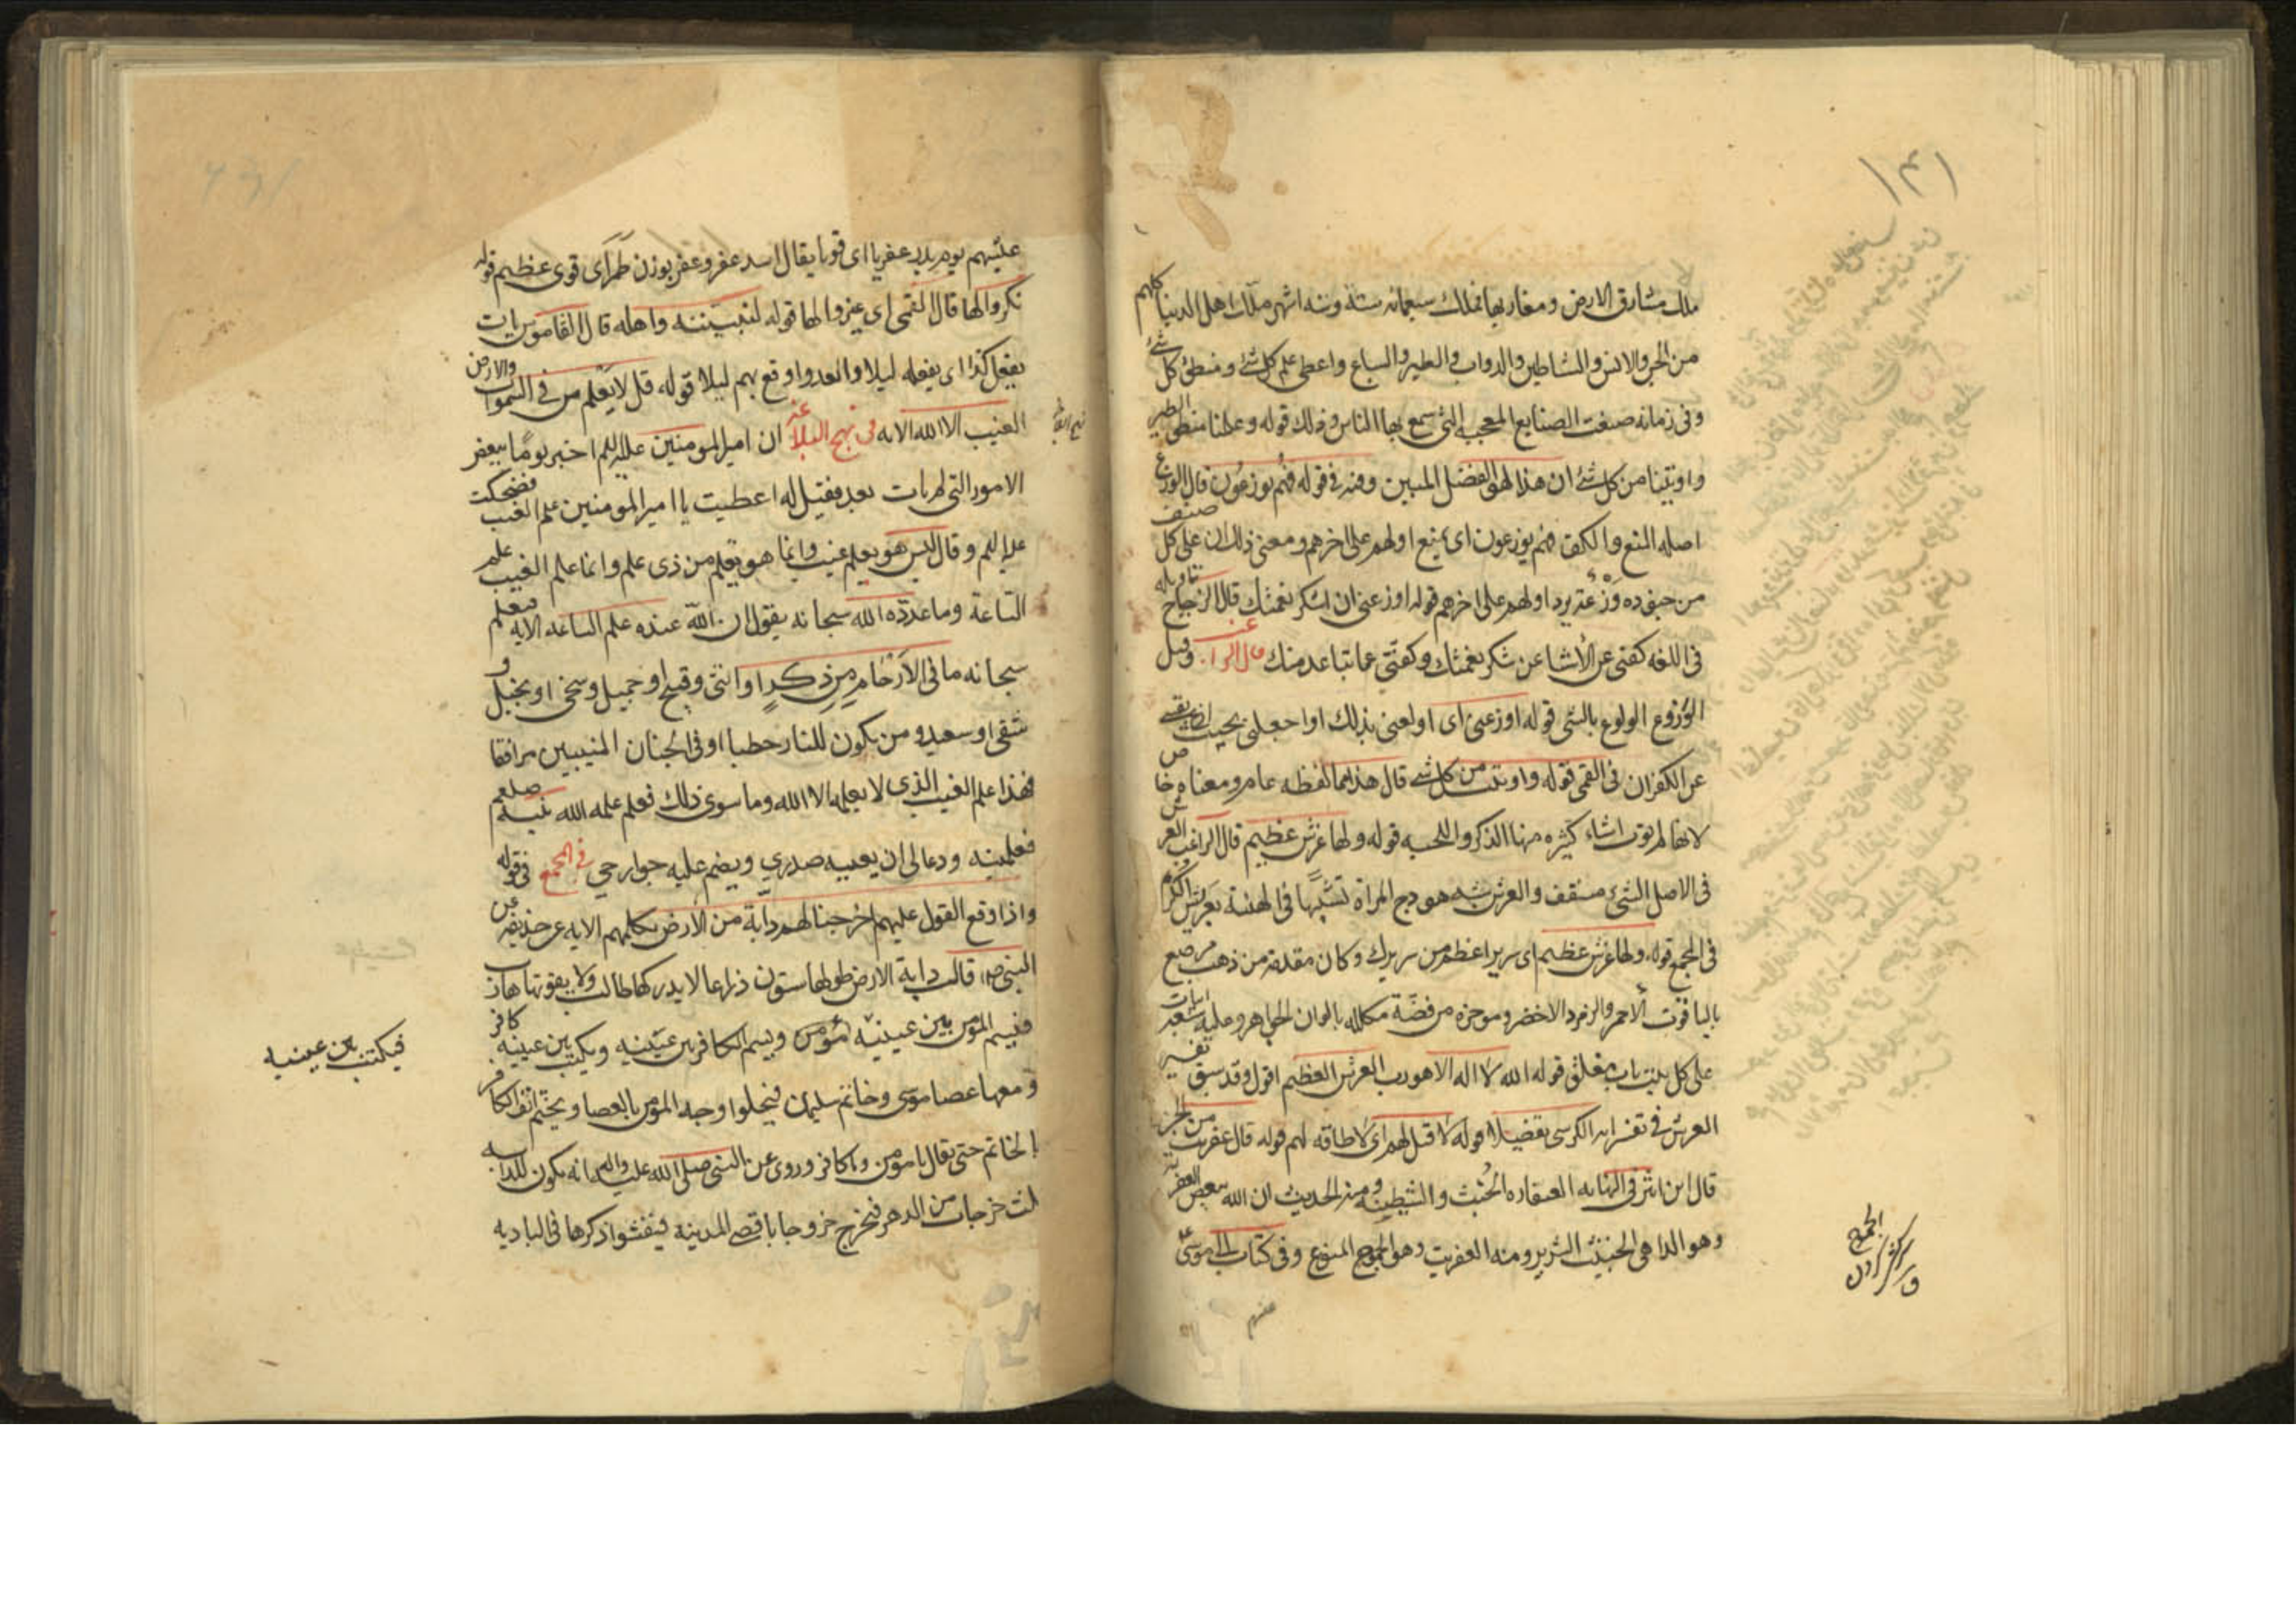 ملك مشارق الارض ومغاربها فملك سبعمائه سنة وسته اشهر ملك اهل الدنيا كلهم
من الجن والانس والشياطين والدواب والطير والسباع واعطى علم كل شئ ومنطق كل شئ
وفى زمانه صنعت الصنايع المعجبه التى سمع بها الناس وذلك قوله وعلمنا منطق الطير
واوتينا من كل شئ ان هذا لهو الفضل المبين وفيه فى قوله فهم يوزعون قال الوزع
اصله المنع والكف فهم يوزعون اى يمنع اولهم على اخرهم ومعنى ذلك ان على كل صنف
من جنوده وزعة يرد اولهم على اخرهم قوله اوزعنى ان اشكر نعمتك قال الزجاج تاويله
فى اللغه كفنى عن الاشيا عن شكر نعمتك وكفنى عما تباعد منك قال الراغب وقيل
الوزوع الولوع بالشى قوله اوزعنى اى اولعنى بذلك او اجعلنى بحيث ازع نفسى
عن الكفران فى القمى قوله واوتيت من كل شى قال هذا مما لفظه عام ومعناه خاص
لانها لم تؤت اشياء كثيره منها الذكر واللحيه قوله ولها عرش عظيم قال الراغب العرش
فى الاصل الشئ مسقف والعرش شبه هودج المراة تشبيها فى الهئية بعريش الكرم
فى المجمع قوله ولها عرش عظيم اى سرير اعظم من سريرك وكان مقدمه من ذهب مرصع
بالياقوت الاحمر والزمرد الاخضر وموخره من فضة مكلله بالوان الجواهر وعليه سبعه ابيات
على كل بيت باب مغلق قوله الله لا اله الا هو رب العرش العظيم اقول وقد سبق تفسير
العرش فى تفسر ايه الكرسى تفضيلا قوله لا قبل لهم اى لا طاقه لهم قوله قال عفريت من الجن
قال ابن اثير فى النهايه العفاره الخبث والشيطنة ومنه الحديث ان الله يبغض العفريه
وهو الداهى الخبيث الشرير ومنه العفريت وهو الجموع المنوع وفى كتاب ابى موسى
الجموح
سركش كردن
عليهم يوم بدر عفريا اى قويا يقال اسد عفر وعفر بوزن طمر اى قوى عظيم قوله
نكروا لها قال القمى اى غيروا لها قوله لنبيتنه واهله قال القاموس بات
يفعل كذا اى يفعله ليلا والعدو اوقع بهم ليلا قوله قل لا يعلم من فى السموات والارض
الغيب الا الله الايه فى نهج البلاغه ان امير المومنين عليه السلم اخبر يوما ببعض
الامور التى لم يات بعد فقيل له اعطيت يا امير المومنين علم الغيب فضحك
عليه السلم وقال ليس هو بعلم غيب وانما هو تعلم من ذى علم وانما علم الغيب علم
الساعة وما عدده الله سبحانه بقوله ان الله عنده علم الساعه الايه فيعلم
سبحانه ما فى الارحام من ذكر او انثى وقبيح او جميل وسخى او بخيل و
شقى او سعيد ومن يكون للنار حطبا او فى الجنان للنبيين مرافقا
فهذا علم الغيب الذى لا يعلمه الا الله وما سوى ذلك فعلم علمه الله نبيه صلعم
فعلمنيه ودعا لى ان يعيه صدري ويضم عليه جوارحي فى المجمع فى قوله
واذا وقع القول عليهم اخرجنا لهم دابة من الارض تكلمهم الايه عن حذيفه عن
النبى ص قال دابة الارض طولها ستون ذراعا لا يدركها طالب ولا يفوتها هارب
فتسم المومن بين عينيه مؤمن وتسم الكافر بين عينيه ويكتب بين عينيه كافر
ومعها عصا موسى وخاتم سليمان فيجلوا وجه المومن بالعصا ويختم انف الكافر
بالخاتم حتى يقال يا مومن ويا كافر وروى عن النبى صلى الله عليه واله انه يكون للدابه
ثلث خرجات من الدهر فتخرج خروجا باقصى المدينه فيفشوا ذكرها فى الباديه
فيكتب بين عينيه